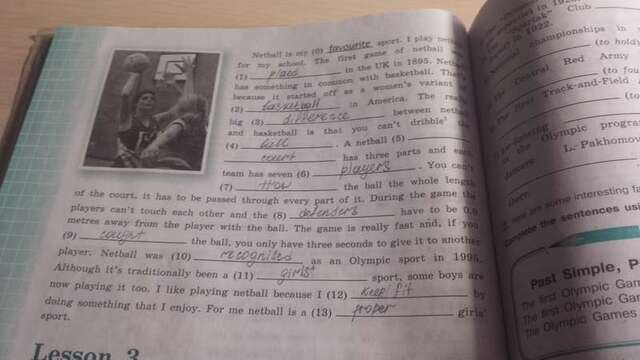 Netball is my (0) favourite sport. I play
for my school. The first game of netball
(1) placd in the UK in 1895.
has something in common with basketball.
because it started off as a women's variant
(2) basketball in America. The
big (3) difference between
and basketball is that you can't dribble
(4) ball. A netball (5)
court has three parts and
team has seven (6) players. You can't
(7) the ball the whole length
of the court, it has to be passed through every part of it. During the game the
players can't touch each other and the (8) defenders have to be 0.9
metres away from the player with the ball. The game is really fast and, if you
(9) cought the ball, you only have three seconds to give it to another
player. Netball was (10) recognized as an Olympic sport in 1995.
Although it's traditionally been a (11) girls' sport, some boys are
now playing it too. I like playing netball because I (12) keep fit by
doing something that I enjoy. For me netball is a (13) proper girls'
sport.
Lesson 3
Club
in 1922.
championships in
(to hold
Central Red Army
(to
First Track-and-Field
Olympic
L. Pakhomov
are some interesting
Complete the sentences using
Past Simple, P
The first Olympic Gam
The first Olympic Gam
The Olympic Games